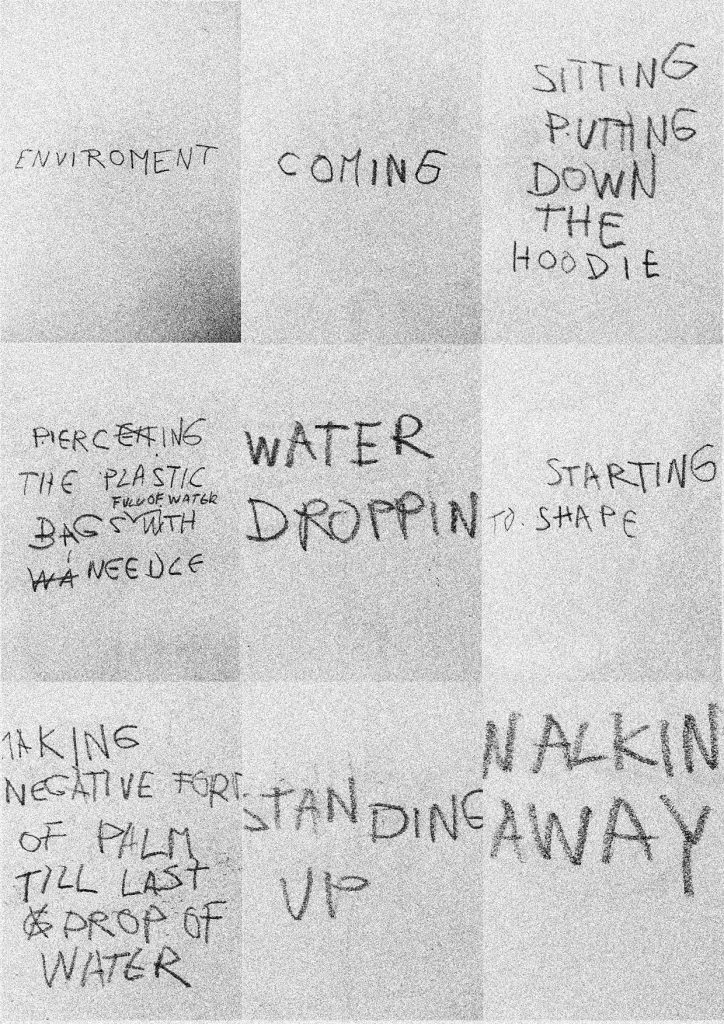 ENVIROMENT
COMING
SITTING
PUTTING
DOWN
THE
HOODIE
PIERCING
THE PLASTIC
FULL OF WATER
BAGS WITH
NEEDLE
WATER
DROPPIN
STARTING
TO SHAPE
TAKING
NEGATIVE FORM
OF PALM
TILL LAST
DROP OF
WATER
STANDING
UP
WALKIN
AWAY